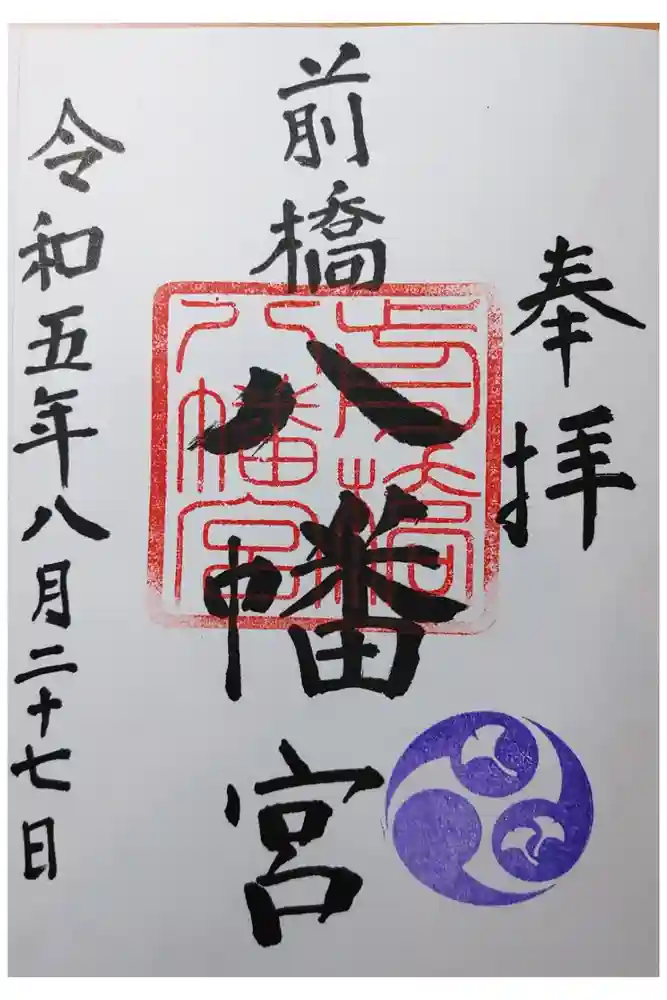 奉拝
前橋
八幡宮
前橋
八幡宮
令和五年八月二十七日